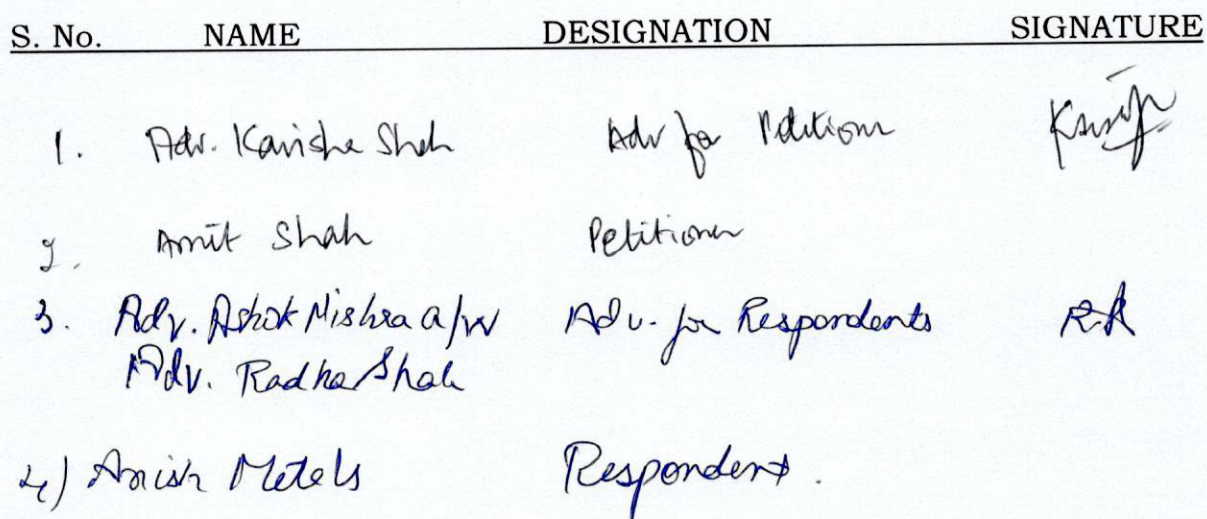 S. No. NAME DESIGNATION SIGNATURE
1. Adv. Kavisha Shah Adv for Petitioner
2. Amit Shah Petitioner
3. Adv. Ashok Mishra a/w Adv. for Respondents
Adv. Radha Shah
4) Anish Metals Respondent.